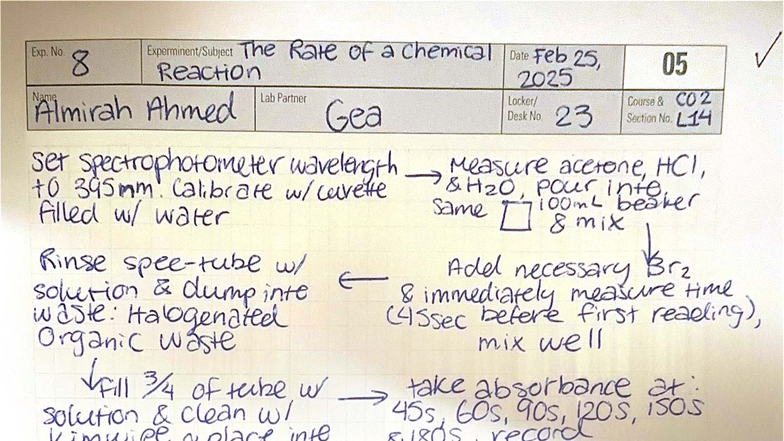 Exp. No. 8
Experminent/Subject The Rate of a Chemical
Reaction
Date Feb 25,
2025
05
Name Almirah Ahmed
Lab Partner Gea
Locker/
Desk No. 23
Course & CO2
Section No. L14
Set spectrophotometer wavelength
to 395mm. Calibrate w/ cuvette
filled w/ water
→ Measure acetone, HCl,
& H2O, pour into
same 100mL beaker
& mix
Add necessary Br2
& immediately measure time
(45sec before first reading),
mix well
Rinse spec-tube w/
solution & dump into
waste: Halogenated
Organic waste
Fill 3/4 of tube w/
solution & clean w/
Kimwipe, place into
→ take absorbance at:
45s, 60s, 90s, 120s, 150s
& 180s, record